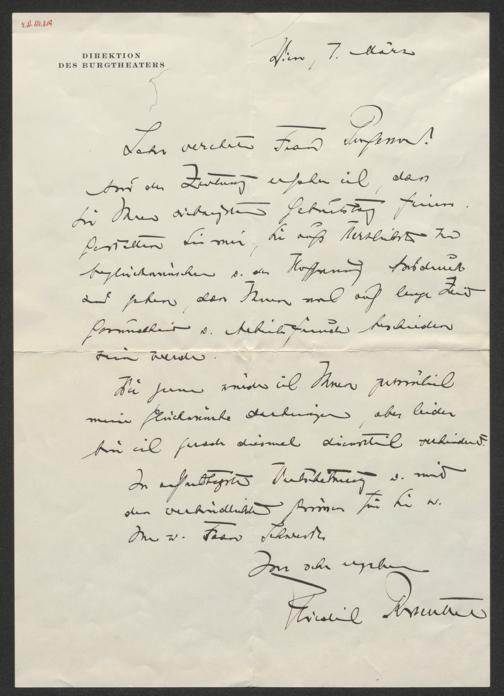 DIREKTION
DES BURGTHEATERS
Wien, 7. März
Sehr verehrte Frau Professor!
Aus der Zeitung ersehe ich, dass
Sie Ihren Geburtstag feiern.
Gestatten Sie mir, Sie aufs herzlichste zu
beglückwünschen u. der Hoffnung Ausdruck
zu geben, dass Ihnen noch auf lange Zeit
Gesundheit u. Arbeitsfreude beschieden
sein werde.
Wie gerne würde ich Ihnen persönlich
meine Glückwünsche darbringen, aber leider
bin ich gerade diesmal dienstlich verhindert.
In aufrichtigster Wertschätzung u. mit
den verbindlichsten Grüssen für Sie u.
Ihre Frau Schwester
Ihr sehr ergebener
Friedrich Rosenthal